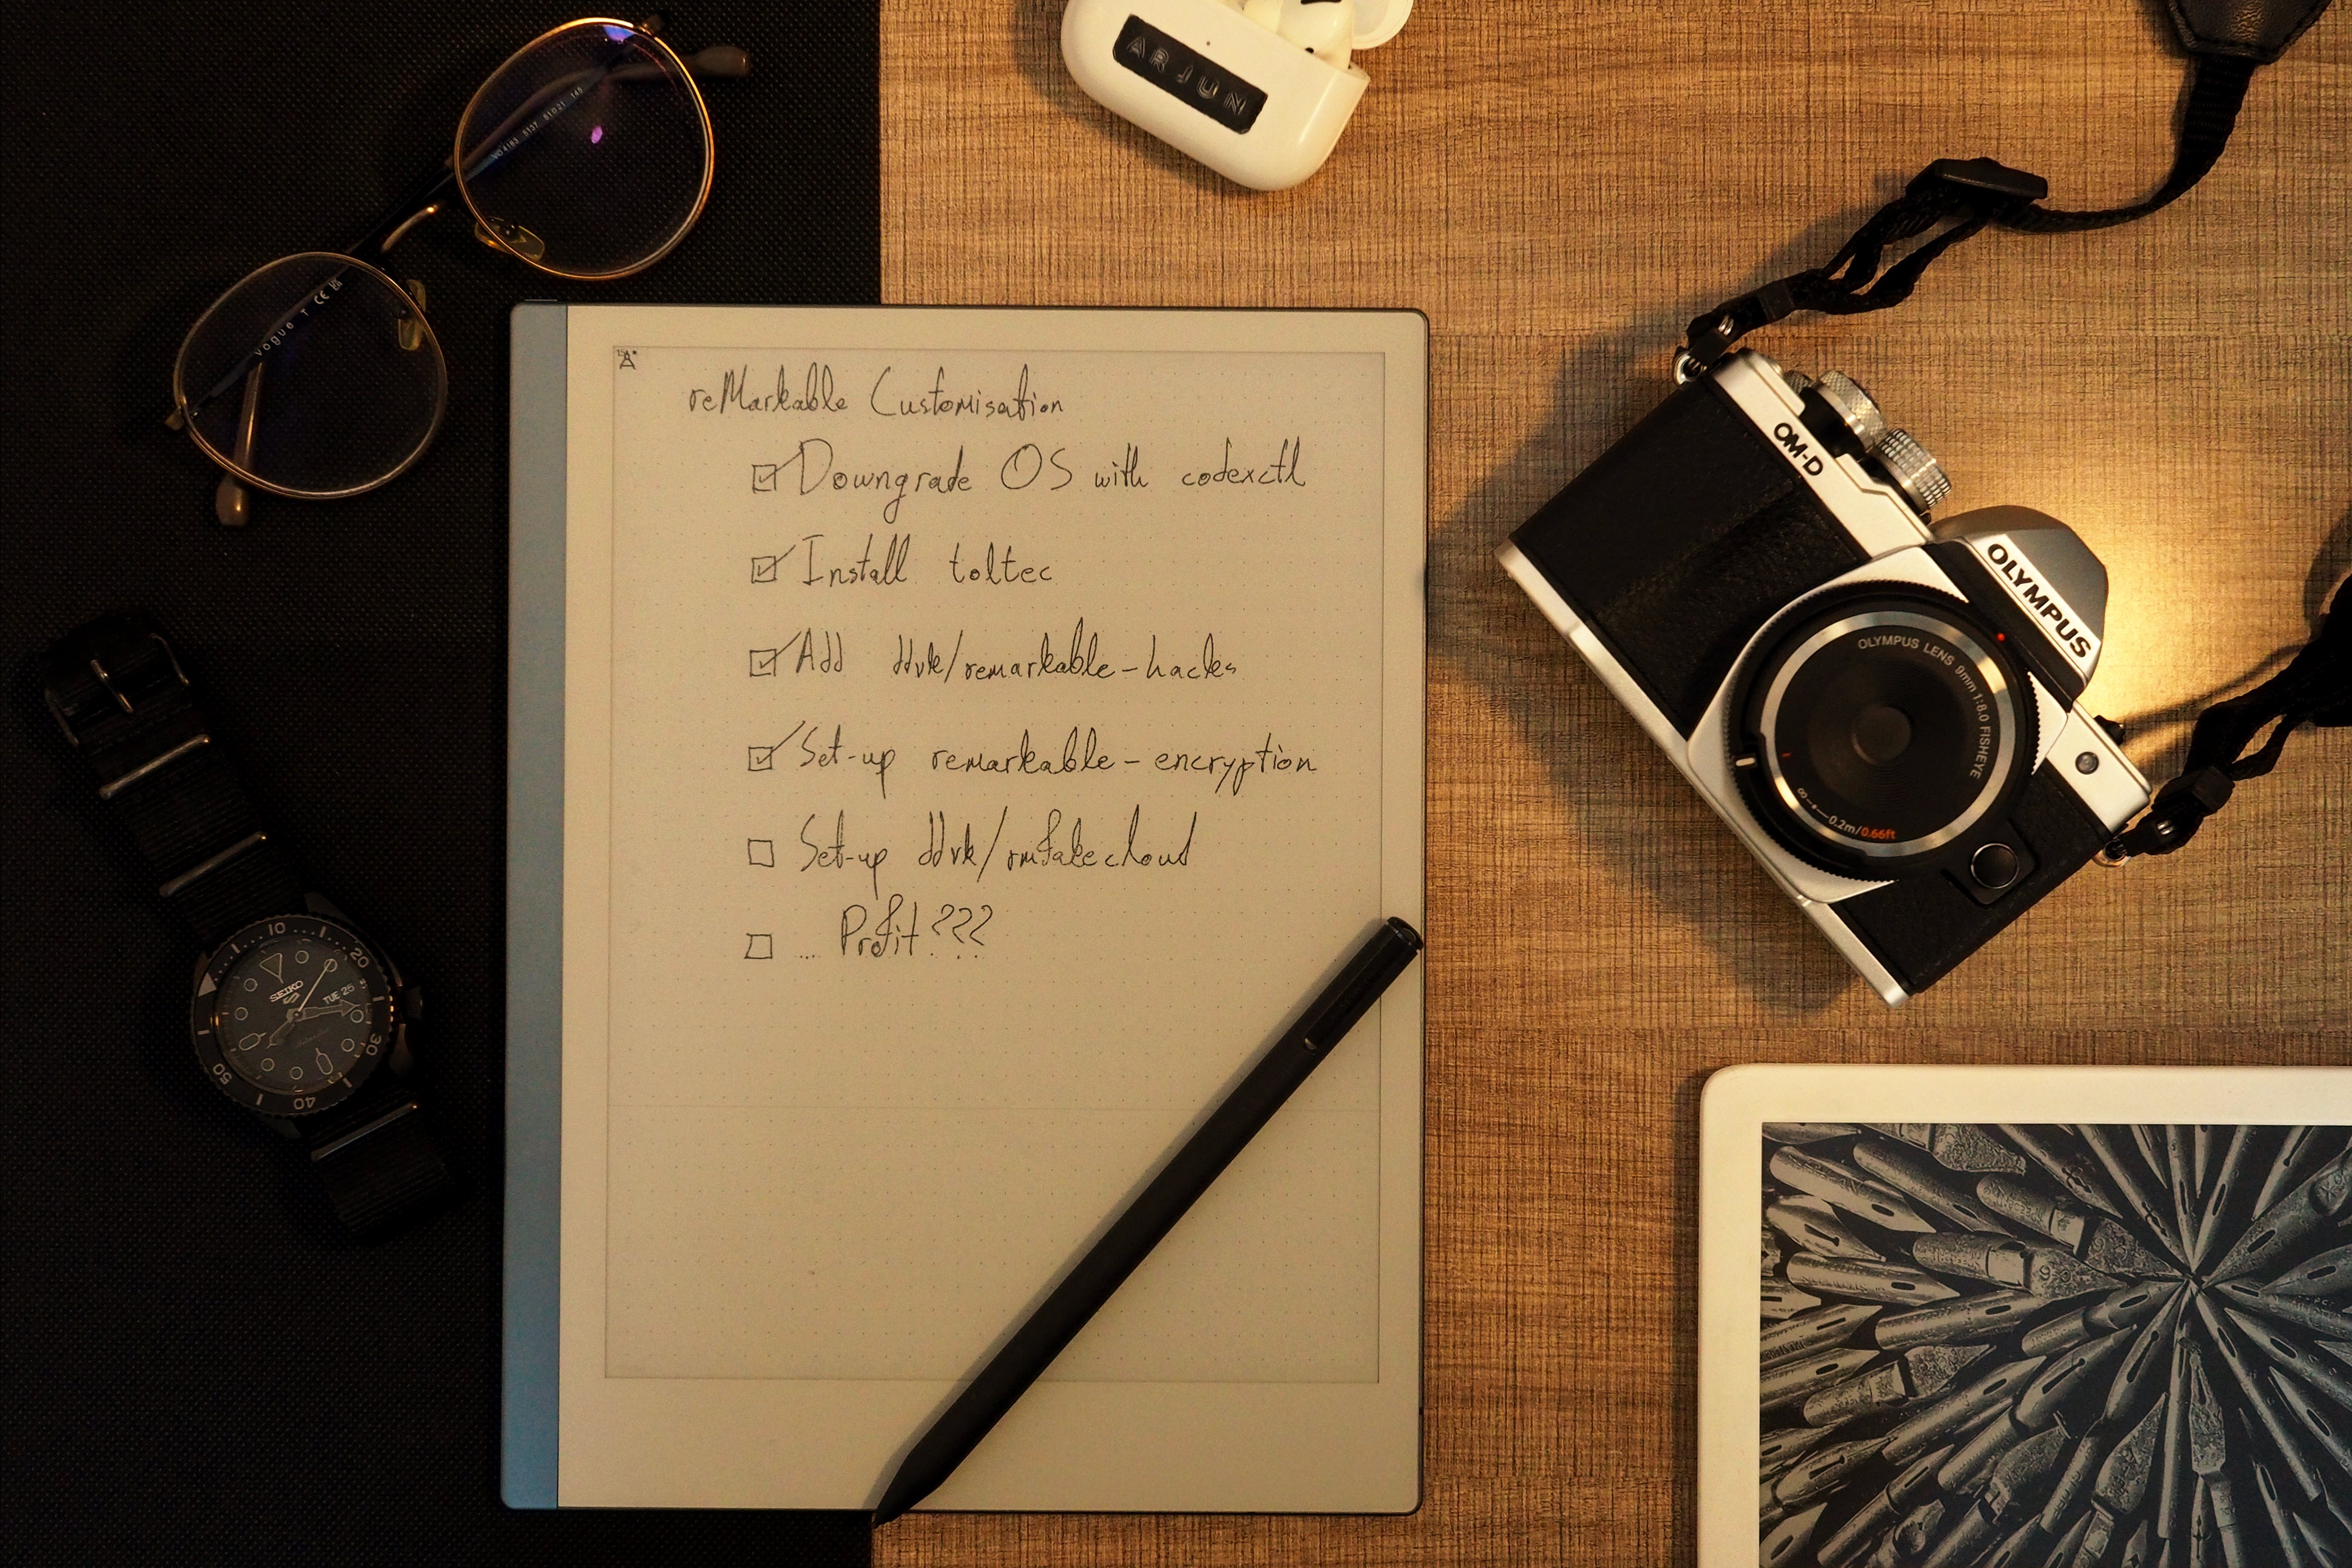 ARJUN
VO4183 5137 51□21 145
vogue T CE
reMarkable Customisation
Downgrade OS with codexctl
Install toltec
Add ddvk/remarkable-hacks
Set-up remarkable-encryption
Set-up ddvk/rmfakecloud
... Profit???
OM-D
OLYMPUS
OLYMPUS LENS 9mm 1:8.0 FISHEYE
∞ 0.2m/0.66ft
10
20
30
40
50
SEIKO
5
TUE 25